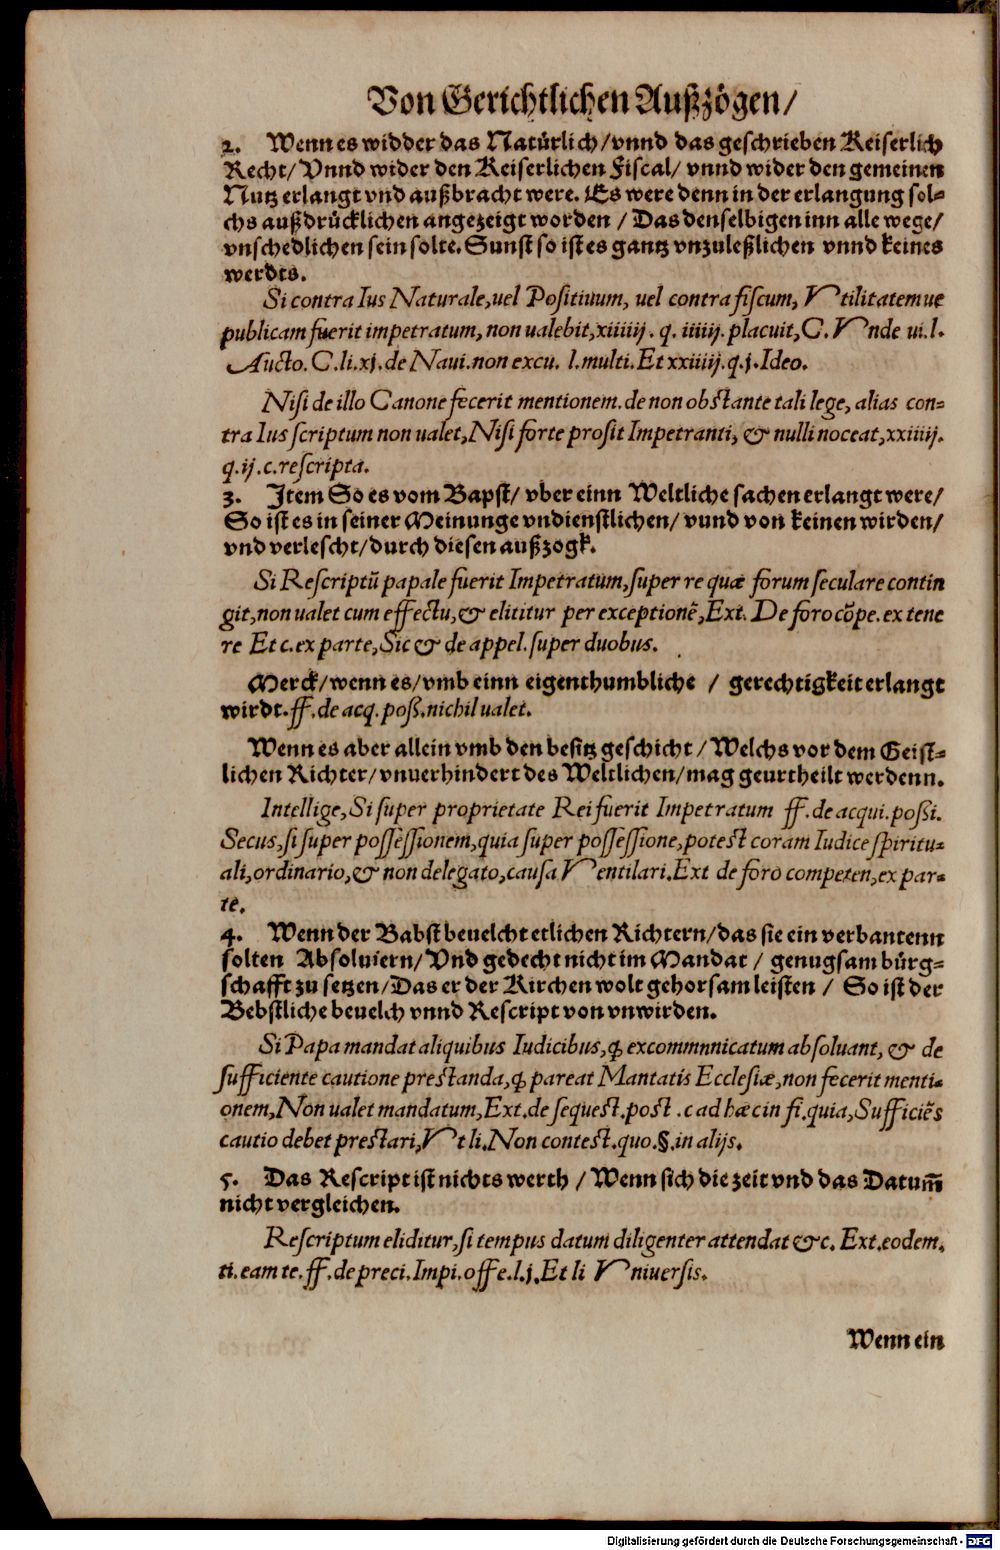 Von Gerichtlichen Außzögen/
2. Wenn es widder das Natürlich/vnnd das geschrieben Keiserlich
Recht/ Vnnd wider den Keiserlichen Fiscal/ vnnd wider den gemeinen
Nutz erlangt vnd außbracht were. Es were denn in der erlangung sol-
chs außdrücklichen angezeigt worden / Das denselbigen inn alle wege/
vnschedlichen sein solte. Sunst so ist es gantz vnzuleßlichen vnnd keines
werdts.
Si contra Ius Naturale, uel Positiuum, uel contra fiscum, Vtilitatemue
publicam fuerit impetratum, non ualebit, xiiiij. q. iiiij. placuit, C. Vnde ui. l.
Aucto. C. li. xj. de Naui. non excu. l. multi. Et xxiiiij. q. j. Ideo.
Nisi de illo Canone fecerit mentionem. de non obstante tali lege, alias con-
tra Ius scriptum non ualet, Nisi forte prosit Impetranti, & nulli noceat, xxiiiij.
q. ij. c. rescripta.
3. Item So es vom Bapst/ vber einn Weltliche sachen erlangt were/
So ist es in seiner Meinunge vndienstlichen/ vund von keinen wirden/
vnd verlescht/durch diesen außzogk.
Si Rescriptū papale fuerit Impetratum, super re quæ forum seculare contin
git, non ualet cum effectu, & elititur per exceptionē, Ext. De foro cōpe. ex tene
re Et c. ex parte, Sic & de appel. super duobus.
Merck/wenn es/vmb einn eigenthumbliche / gerechtigkeit erlangt
wirdt. ff. de acq. poß. nichil ualet.
Wenn es aber allein vmb den besitz geschicht / Welchs vor dem Geist-
lichen Richter/vnuerhindert des Weltlichen/mag geurtheilt werdenn.
Intellige, Si super proprietate Rei fuerit Impetratum ff. de acqui. poßi.
Secus, si super possessionem, quia super possessione, potest coram Iudice spiritu-
ali, ordinario, & non delegato, causa Ventilari. Ext de foro competen, ex par-
te.
4. Wenn der Babst beuelcht etlichen Richtern/das sie ein verbantenn
solten Absoluiern/Vnd gedecht nicht im Mandat / genugsam bürg-
schafft zu setzen/Das er der Kirchen wolt gehorsam leisten / So ist der
Bebstliche beuelch vnnd Rescript von vnwirden.
Si Papa mandat aliquibus Iudicibus, ꝙ excommnnicatum absoluant, & de
sufficiente cautione prestanda, ꝙ pareat Mantatis Ecclesiæ, non fecerit menti-
onem, Non ualet mandatum, Ext. de sequest. post . c ad hæc in fi. quia, Sufficiēs
cautio debet prestari, Vt li. Non contest. quo. §. in alijs.
5. Das Rescript ist nichts werth / Wenn sich die zeit vnd das Datum̄
nicht vergleichen.
Rescriptum eliditur, si tempus datum diligenter attendat &c. Ext. eodem.
ti. eam te. ff. de preci. Impi. offe. l. j. Et li Vniuersis.
Wenn ein
Digitalisierung gefördert durch die Deutsche Forschungsgemeinschaft - DFG